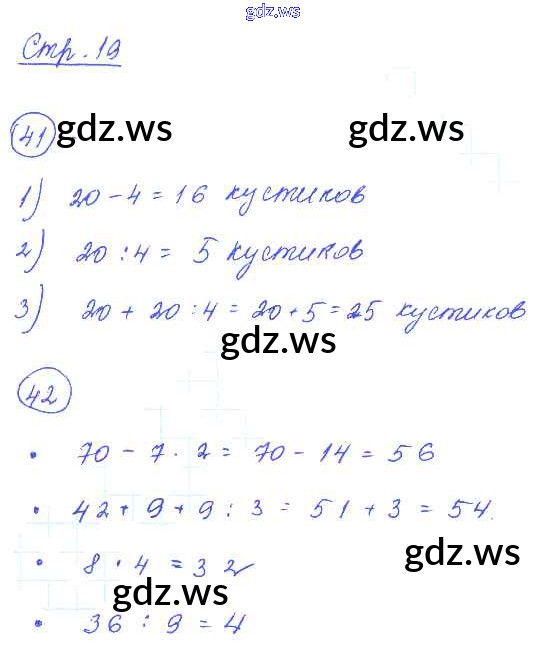 gdz.ws
Стр. 19
41 gdz.ws gdz.ws
1) 20 - 4 = 16 кустиков
2) 20 : 4 = 5 кустиков
3) 20 + 20 : 4 = 20 + 5 = 25 кустиков
gdz.ws
42
• 70 - 7 · 2 = 70 - 14 = 56
• 42 + 9 + 9 : 3 = 51 + 3 = 54.
gdz.ws
• 8 · 4 = 32
gdz.ws
• 36 : 9 = 4